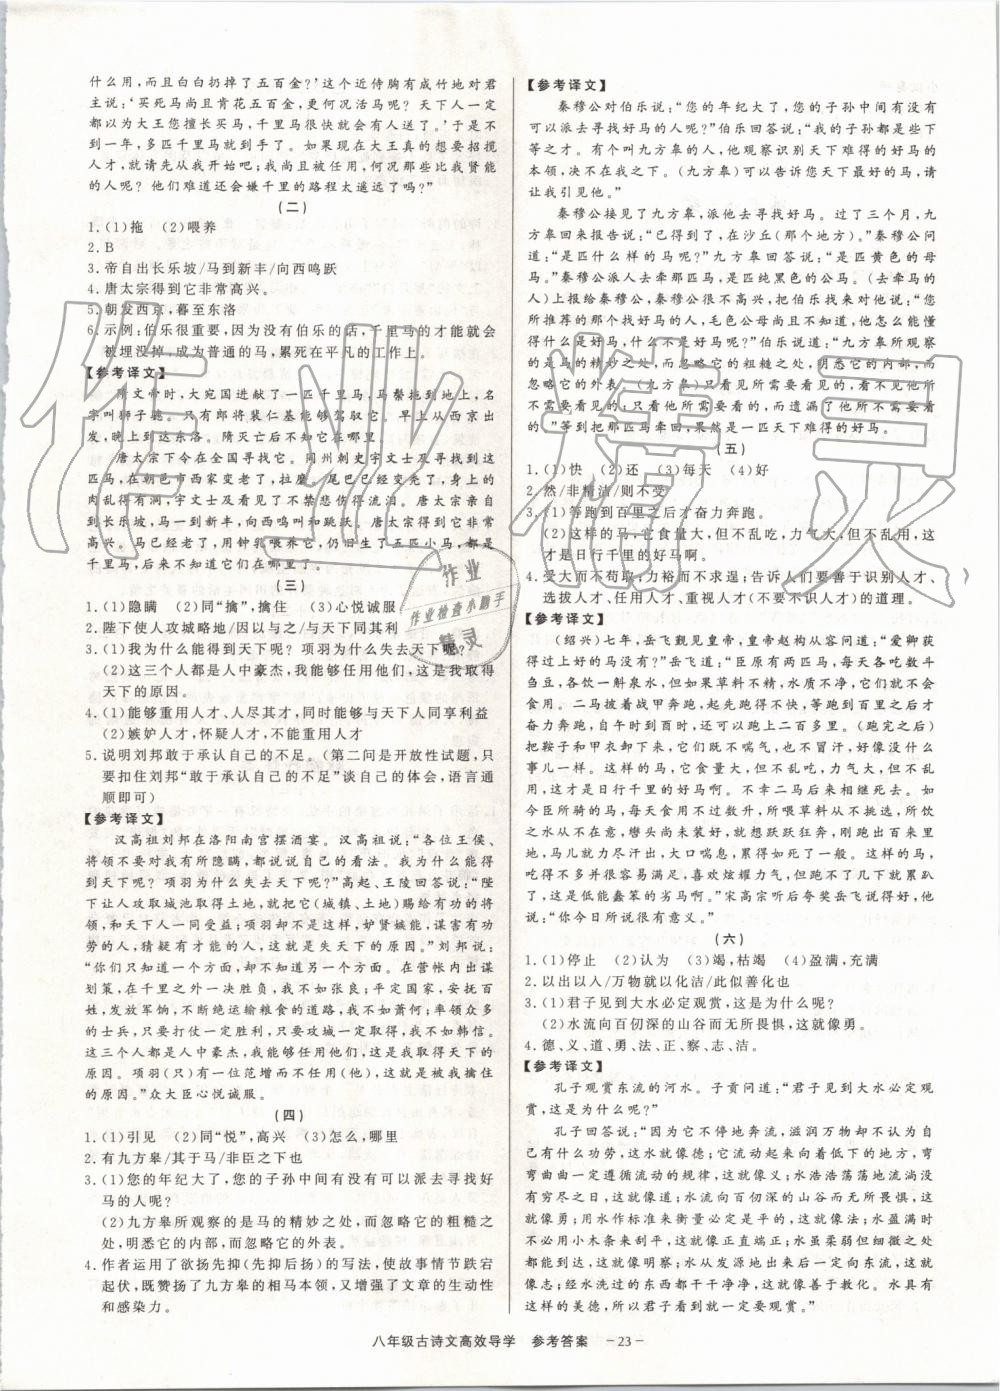 什么用,而且白白扔掉了五百金?’这个近侍胸有成竹地对君
主说:‘买死马尚且肯花五百金,更何况活马呢?天下人一定
都以为大王您擅长买马,千里马很快就会有人送了。’于是不
到一年,多匹千里马就到手了。如果现在大王真的想要招揽
人才,就请先从我开始吧;我尚且被任用,何况那些比我贤能
的人呢?他们难道还会嫌千里的路程太遥远了吗?”
(二)
1.(1)拖 (2)喂养
2.B
3.帝自出长乐坡/马到新丰/向西鸣跃
4.唐太宗得到它非常高兴。
5.朝发西京,暮至东洛
6.示例:伯乐很重要,因为没有伯乐的话,千里马的才能就会
被埋没掉,成为普通的马,累死在平凡的工作上。
【参考译文】
隋文帝时,大宛国进献了一匹千里马,马鬃拖到地上,名
字叫狮子骢。只有郎将裴仁基能够驾驭它。早上从西京出
发,晚上到达东洛。隋灭亡后不知它在哪里。
唐太宗下令在全国寻找它。同州刺史宇文士及访求到
马,在朝邑市西家变老了,拉磨。尾巴已经变了形,身上的
肉乱得有洞,宇文士及看见了不禁悲伤得流泪。唐太宗亲
自到长乐坡,马一到新丰,向西鸣叫和跳跃。唐太宗得到它非常
高兴。马已经老了,用钟乳喂养它,仍旧生了五匹小马,都是
千里马。后来不知它在哪里。
(三)
1.(1)隐瞒 (2)同“擒”,擒住 (3)心悦诚服
2.陛下使人攻城略地/因以与之/与天下同其利
3.(1)我为什么能得到天下呢?项羽为什么失去天下呢?
(2)这三个人都是人中豪杰,我能够任用他们,这是我取得
天下的原因。
4.(1)能够重用人才、人尽其才,同时能够与天下人同享利益
(2)嫉妒人才,怀疑人才,不能重用人才
5.说明刘邦敢于承认自己的不足。(第二问是开放性试题,只
要扣住刘邦“敢于承认自己的不足”谈自己的体会,语言通
顺即可)
【参考译文】
汉高祖刘邦在洛阳南宫摆酒宴。汉高祖说:“各位王侯、
将领不要对我有所隐瞒,都说说自己的看法。我为什么能得
到天下呢?项羽为什么失去天下呢?”高起、王陵回答说:“陛
下让人攻取城池取得土地,就把它(城镇、土地)赐给有功的将
领,和天下人一同受益;项羽却不是这样,妒贤嫉能,谋害有功
劳的人,猜疑有才能的人,这就是失天下的原因。”刘邦说:
“你们只知道一个方面,却不知道另一个方面。在营帐内出谋
划策,在千里之外决胜负,我不如张良;平定国家,安抚百
姓,发放军饷,不断绝运输粮食的道路,我不如萧何;率领众多
的士兵,只打仗一定胜利,只攻城一定取得,我不如韩信。
这三个人都是人中豪杰,我能够任用他们,这是我取得天下的
原因。项羽(只)有一位范增而不任用(他),这就是被我捉拿
的原因。”众大臣心悦诚服。
(四)
1.(1)引见 (2)同“悦”,高兴 (3)怎么,哪里
2.有九方皋/其于马/非臣之下也
3.(1)您的年纪大了,您的子孙中间有没有可以派去寻找好
马的人呢?
(2)九方皋所观察的是马的精妙之处,而忽略它的粗糙之
处,明悉它的内部,而忽略它的外表。
4.作者运用了欲扬先抑(先抑后扬)的写法,使故事情节跌宕
起伏,既赞扬了九方皋的相马本领,又增强了文章的生动性
和感染力。
【参考译文】
秦穆公对伯乐说:“您的年纪大了,您的子孙中间有没有
可以派去寻找好马的人呢?”伯乐回答说:“我的子孙都是些下
等之才。有个叫九方皋的人,他观察识别天下难得的好马的
本领,决不在我之下。(九方皋)可以告诉您天下难得的马,请
让我引见他。”
秦穆公接见了九方皋,派他去寻找好马。过了三个月,九
方皋回来报告说:“已得到了,在沙丘(那个地方)。”秦穆公问
道:“是匹什么样的马呢?”九方皋回答说:“是匹黄色的母
马。”秦穆公派人去牵那匹马,是匹纯黑色的公马。(去牵马的
人)上报给秦穆公,秦穆公很不高兴,把伯乐找来对他说:“您
所推荐的那个找好马的人,毛色公母尚且不知道,他怎么能懂
得什么是好马,什么不是好马呢?”伯乐说:“九方皋所观察的
是马的精妙之处,而忽略它的粗糙之处,明悉它的内部,而
忽略它的外表。(九方皋)只看见所需要看见的,看不见他所
不需要看见的;只看他所需要看的,而遗漏了他所不需要看
的。”等到把那匹马牵回,果然是一匹天下难得的好马。
(五)
1.(1)快 (2)还 (3)每天 (4)好
2.然/非精洁/则不受
3.(1)等跑到百里之后才奋力奔跑。
(2)这样的马,它食量大,但不乱吃,力气大,但不逞能,这
才是日行千里的好马啊。
4.受大而不苟取;力裕而不求逞;告诉人们要善于识别人才、
选拔人才、任用人才、重视人才(不要不识人才)的道理。
【参考译文】
(绍兴)七年,岳飞觐见皇帝,皇帝赵构从容问道:“爱卿获
得过好的马没有?”岳飞道:“臣原有两匹马,每天各吃数斗
刍豆,各饮一斛泉水,但如果草料不精,水质不净,它们就不
食用。二马披着战甲奔跑,起先跑得不快,等跑到百里之后才
奋力奔跑,自午时到酉时,还可以跑上二百多里。(跑完之后)
把鞍子和甲衣卸下来,它们既不喘气,也不出汗,好像没什么
事儿一样。这样的马,它食量大,但不乱吃,力气大,但不逞
能,这才是日行千里的好马啊。不幸二马后来相继死去。如
今臣所骑的马,每天食用不过数升,所喂草料从不挑选,所饮
之水从不在意,辔头尚未装好,就想跃跃狂奔,刚跑出百来里
地,马儿就力尽汗出,大口喘息,累得如死了一般。这样的马,
吃得不多并很容易满足,喜欢炫耀力气,但跑不了几里就累趴
了,这是低能蠢笨的劣马啊。”宋高宗听后夸奖岳飞说得好,他
说:“你今日所说很有意义。”
(六)
1.(1)停止 (2)认为 (3)竭,枯竭 (4)盈满,充满
2.以出以人/万物就以化洁/此似善化也
3.(1)君子见到大水必定观赏,这是为什么呢?
(2)水流向百仞深的山谷而无所畏惧,这就像勇。
4.德、义、道、勇、法、正、察、志、洁。
【参考译文】
孔子观赏东流的河水。子贡问道:“君子见到大水必定观
赏,这是为什么呢?”
孔子回答说:“因为它不停地奔流,滋润万物却又不认为
自己有什么功劳,这就像德;它流动起来总是向着低下的地方,弯
弯曲曲一定遵循流动的规律,这就像义;水浩浩荡荡没有穷
尽,这就像道;水流向百仞深的山谷而无所畏惧,这就像
勇;用水作标准来衡量必定是平的,这就像法;盛满了水不
必用小木条来刮平,这就像正直端正;水虽柔弱却能到达所有
细微的地方,这就像明察;水从发源地出来一定向东流,这就
像志;经水洗过的东西都干干净净,这就像善于教化。水具有
这样的美德,所以君子看到一定要观赏。”
八年级古诗文高效导学 参考答案 －23－
作业精灵
作业
作业检查小助手
精灵